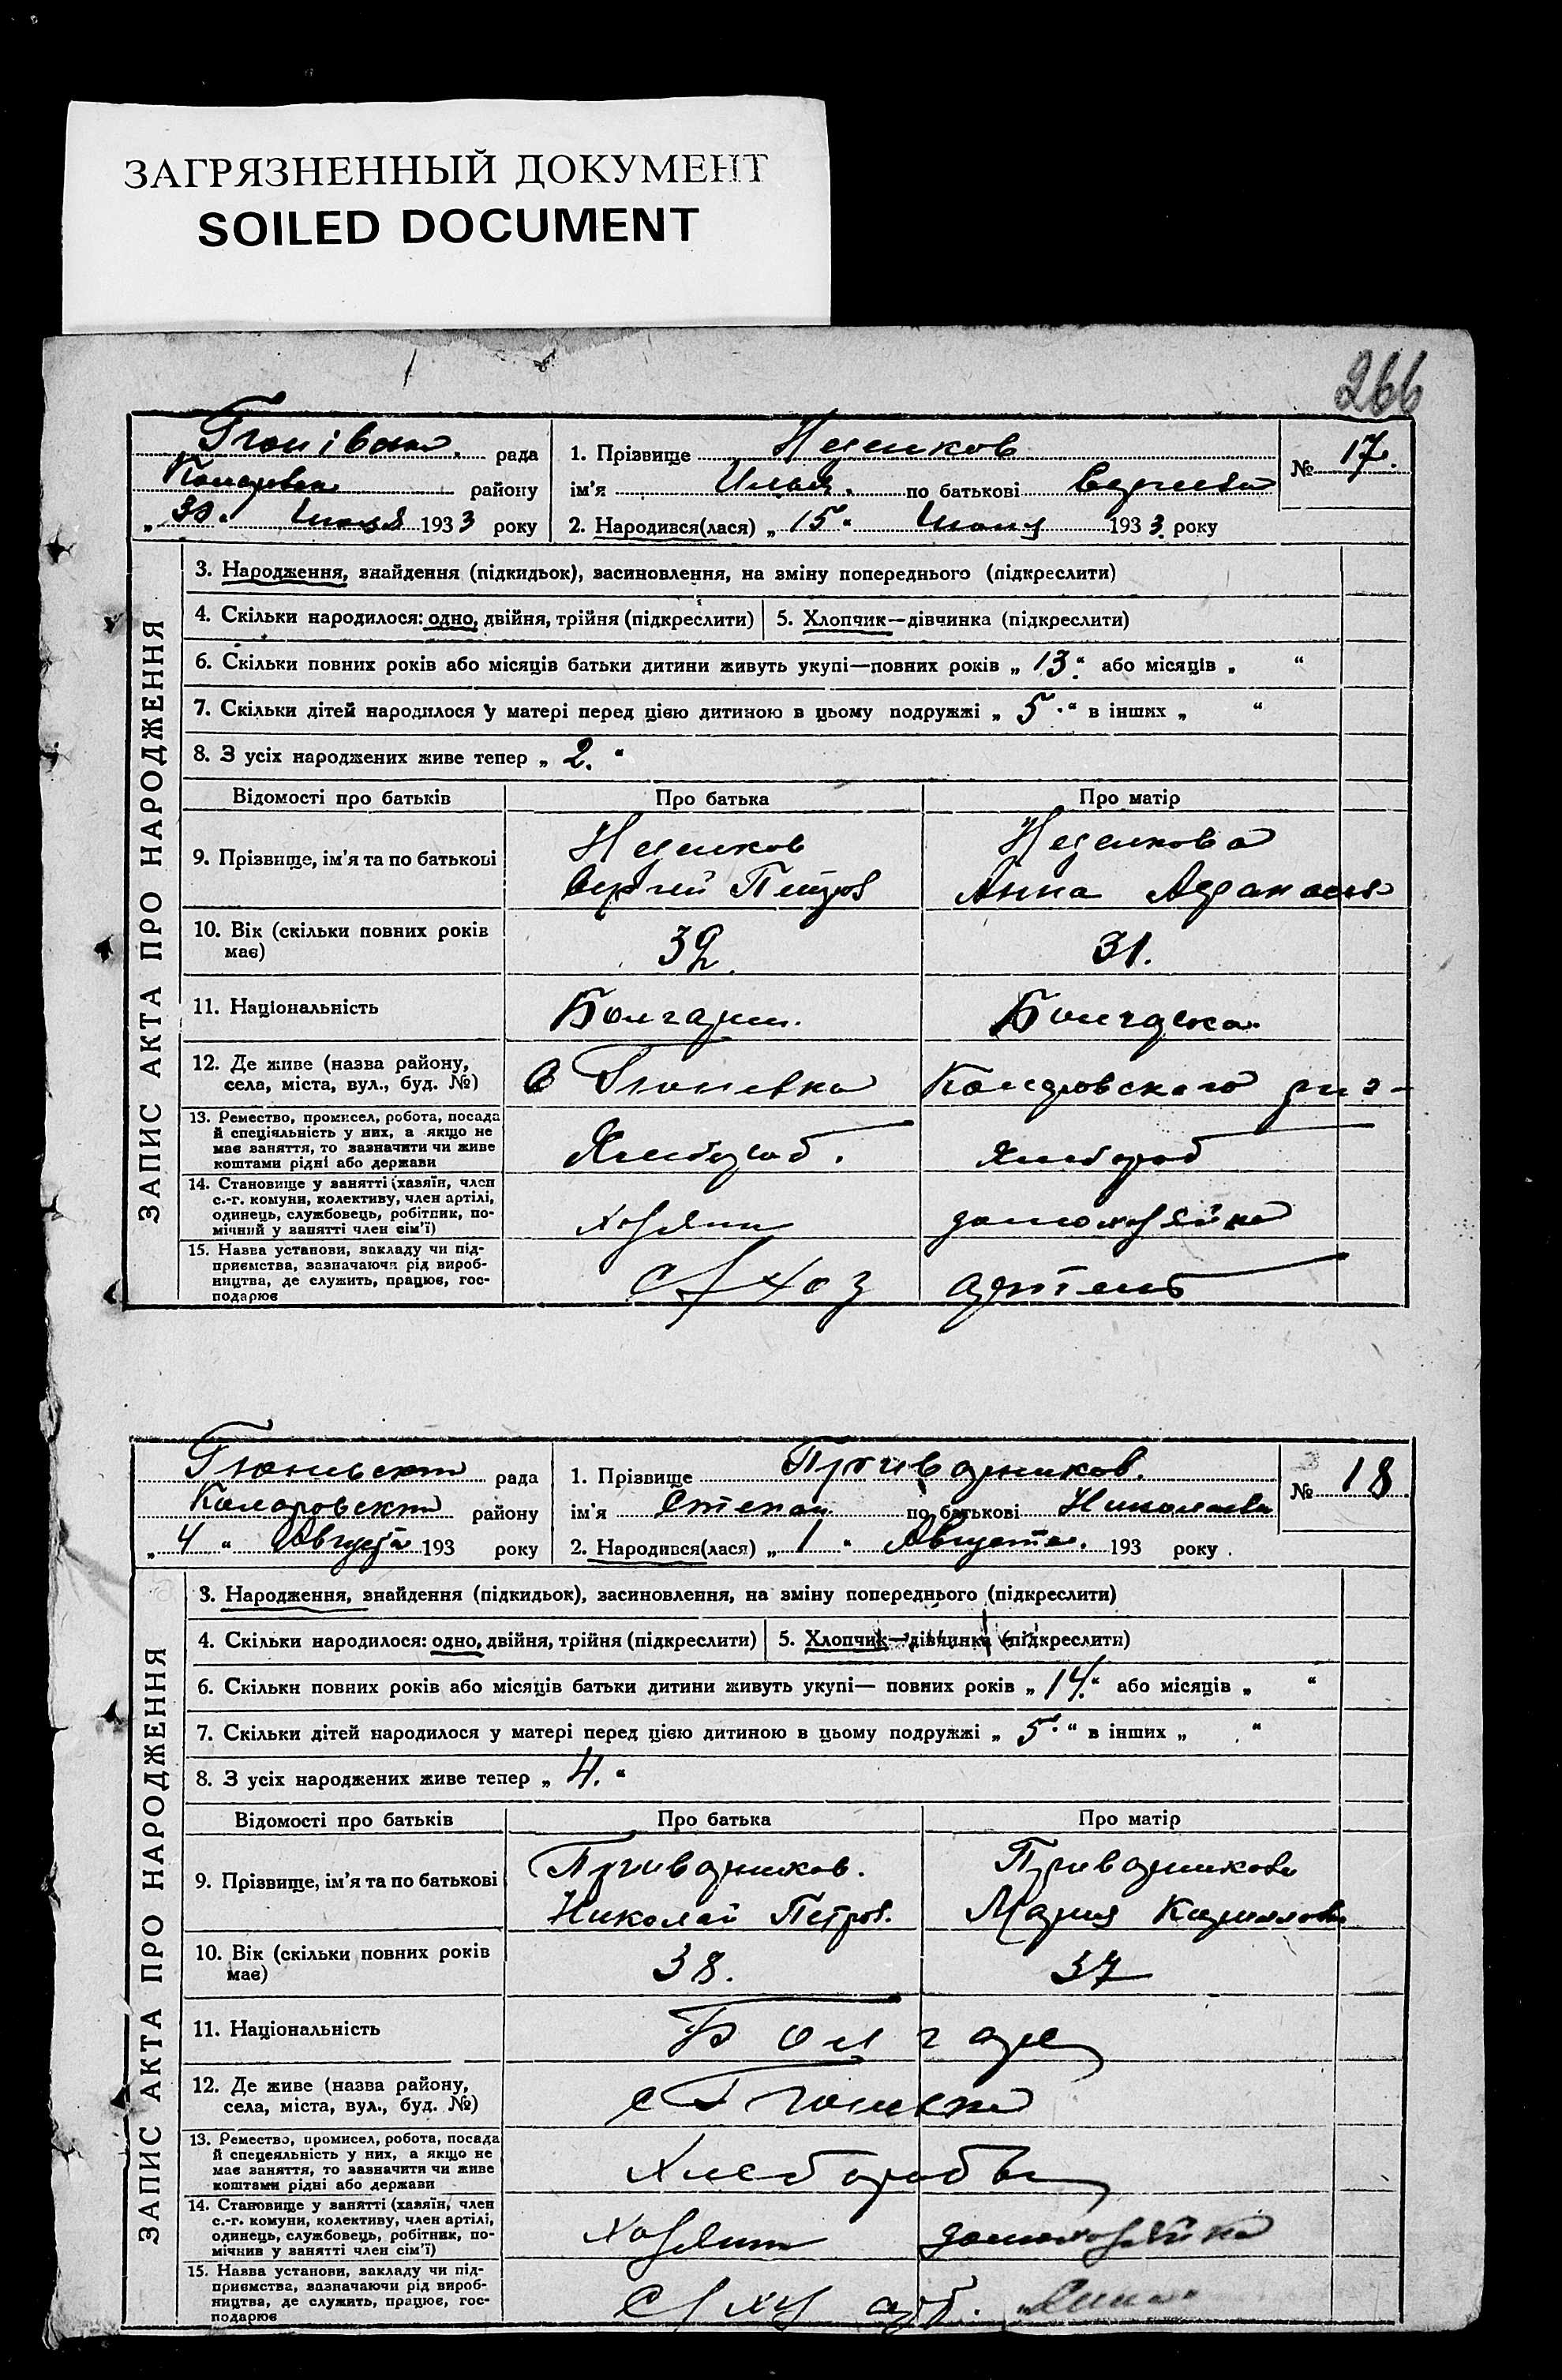 ЗАГРЯЗНЕННЫЙ ДОКУМЕНТ
SOILED DOCUMENT
266
рада
району
„30“ 1933 року
1. Прізвище
ім'я Илья. по батькові
2. Народився(лася) „15“ 1933. року
№ 17.
ЗАПИС АКТА ПРО НАРОДЖЕННЯ
3. Народження, знайдення (підкидьок), засиновлення, на зміну попереднього (підкреслити)
4. Скільки народилося: одно, двійня, трійня (підкреслити)
5. Хлопчик—дівчинка (підкреслити)
6. Скільки повних років або місяців батьки дитини живуть укупі—повних років „13.“ або місяців „ “
7. Скільки дітей народилося у матері перед цією дитиною в цьому подружжі „5.“ в інших „ “
8. З усіх народжених живе тепер „2.“
Відомості про батьків Про батька Про матір
9. Прізвище, ім'я та по батькові
Сергей Петров Анна
10. Вік (скільки повних років
має)
32. 31.
11. Національність Болгарин. Болгарка.
12. Де живе (назва району,
села, міста, вул., буд. №)
в Гюневка Коларовского
13. Ремество, промисел, робота, посада
й спеціяльність у них, а якщо не
має заняття, то зазначити чи живе
коштами рідні або держави
Хлебороб. Хлебороб
14. Становище у занятті (хазяїн, член
с.-г. комуни, колективу, член артілі,
одинець, службовець, робітник, по-
мічний у занятті член сім'ї)
Хозяин домохозяйка
15. Назва установи, закладу чи під-
приємства, зазначаючи рід вироб-
ництва, де служить, працює, гос-
подарює
С/хоз артель
рада
Коларовского району
„4“ Августа 193 року
1. Прізвище Приводников.
ім'я Степан по батькові
2. Народився(лася) „1“ Августа. 193 року.
№ 18.
ЗАПИС АКТА ПРО НАРОДЖЕННЯ
3. Народження, знайдення (підкидьок), засиновлення, на зміну попереднього (підкреслити)
4. Скільки народилося: одно, двійня, трійня (підкреслити)
5. Хлопчик—дівчинка (підкреслити)
6. Скільки повних років або місяців батьки дитини живуть укупі— повних років „14.“ або місяців „ “
7. Скільки дітей народилося у матері перед цією дитиною в цьому подружжі „5.“ в інших „ “
8. З усіх народжених живе тепер „4.“
Відомості про батьків Про батька Про матір
9. Прізвище, ім'я та по батькові
Приводников. Приводникова
Николай Петров. Мария Кириллова
10. Вік (скільки повних років
має)
38. 37
11. Національність Болгаре
12. Де живе (назва району,
села, міста, вул., буд. №)
с Гюневка
13. Ремество, промисел, робота, посада
й спецеяльність у них, а якщо не
має заняття, то зазначити чи живе
коштами рідні або держави
Хлеборобы
14. Становище у занятті (хазяїн, член
с.-г. комуни, колективу, член артілі,
одинець, службовець, робітник, по-
мічнив у занятті член сім'ї)
Хозяин домохозяйка
15. Назва установи, закладу чи під-
приємства, зазначаючи рід вироб-
ництва, де служить, працює, гос-
подарює